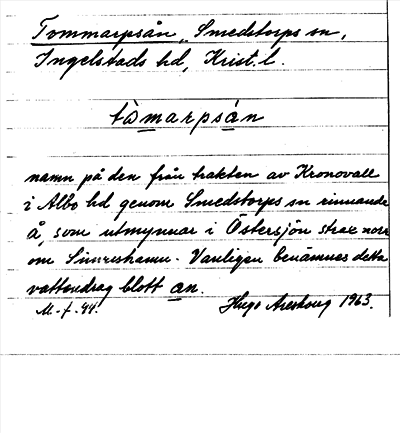 Tommarpsån, Smedstorps sn,
Ingelstads hd, Krist. l.
tòmarpsán
namn på den från trakten av Kronovall
i Albo hd genom Smedstorps sn rinnande
å, som utmynnar i Östersjön strax norr
om Simrishamn. Vanligen benämnes detta
vattendrag blott an.
M. f. 94. Hugo Areskoug 1963.